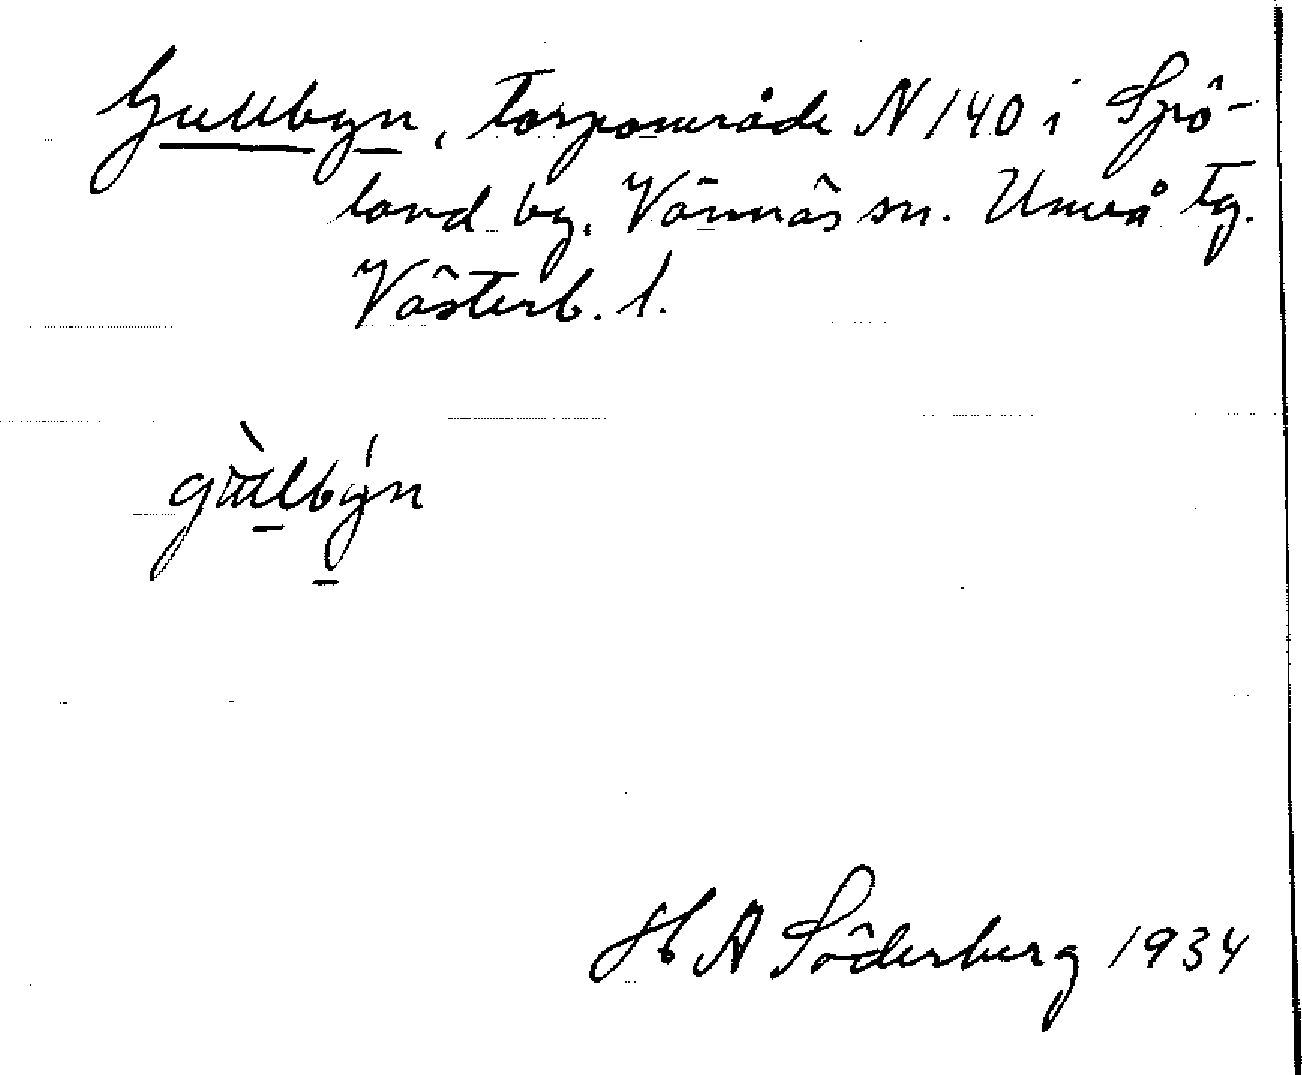 Gullbyn, torpområde N 140 i Spö-
land by. Vännäs sn. Umeå tg.
Västerb. l.
gùlbýn
H A Söderberg 1934